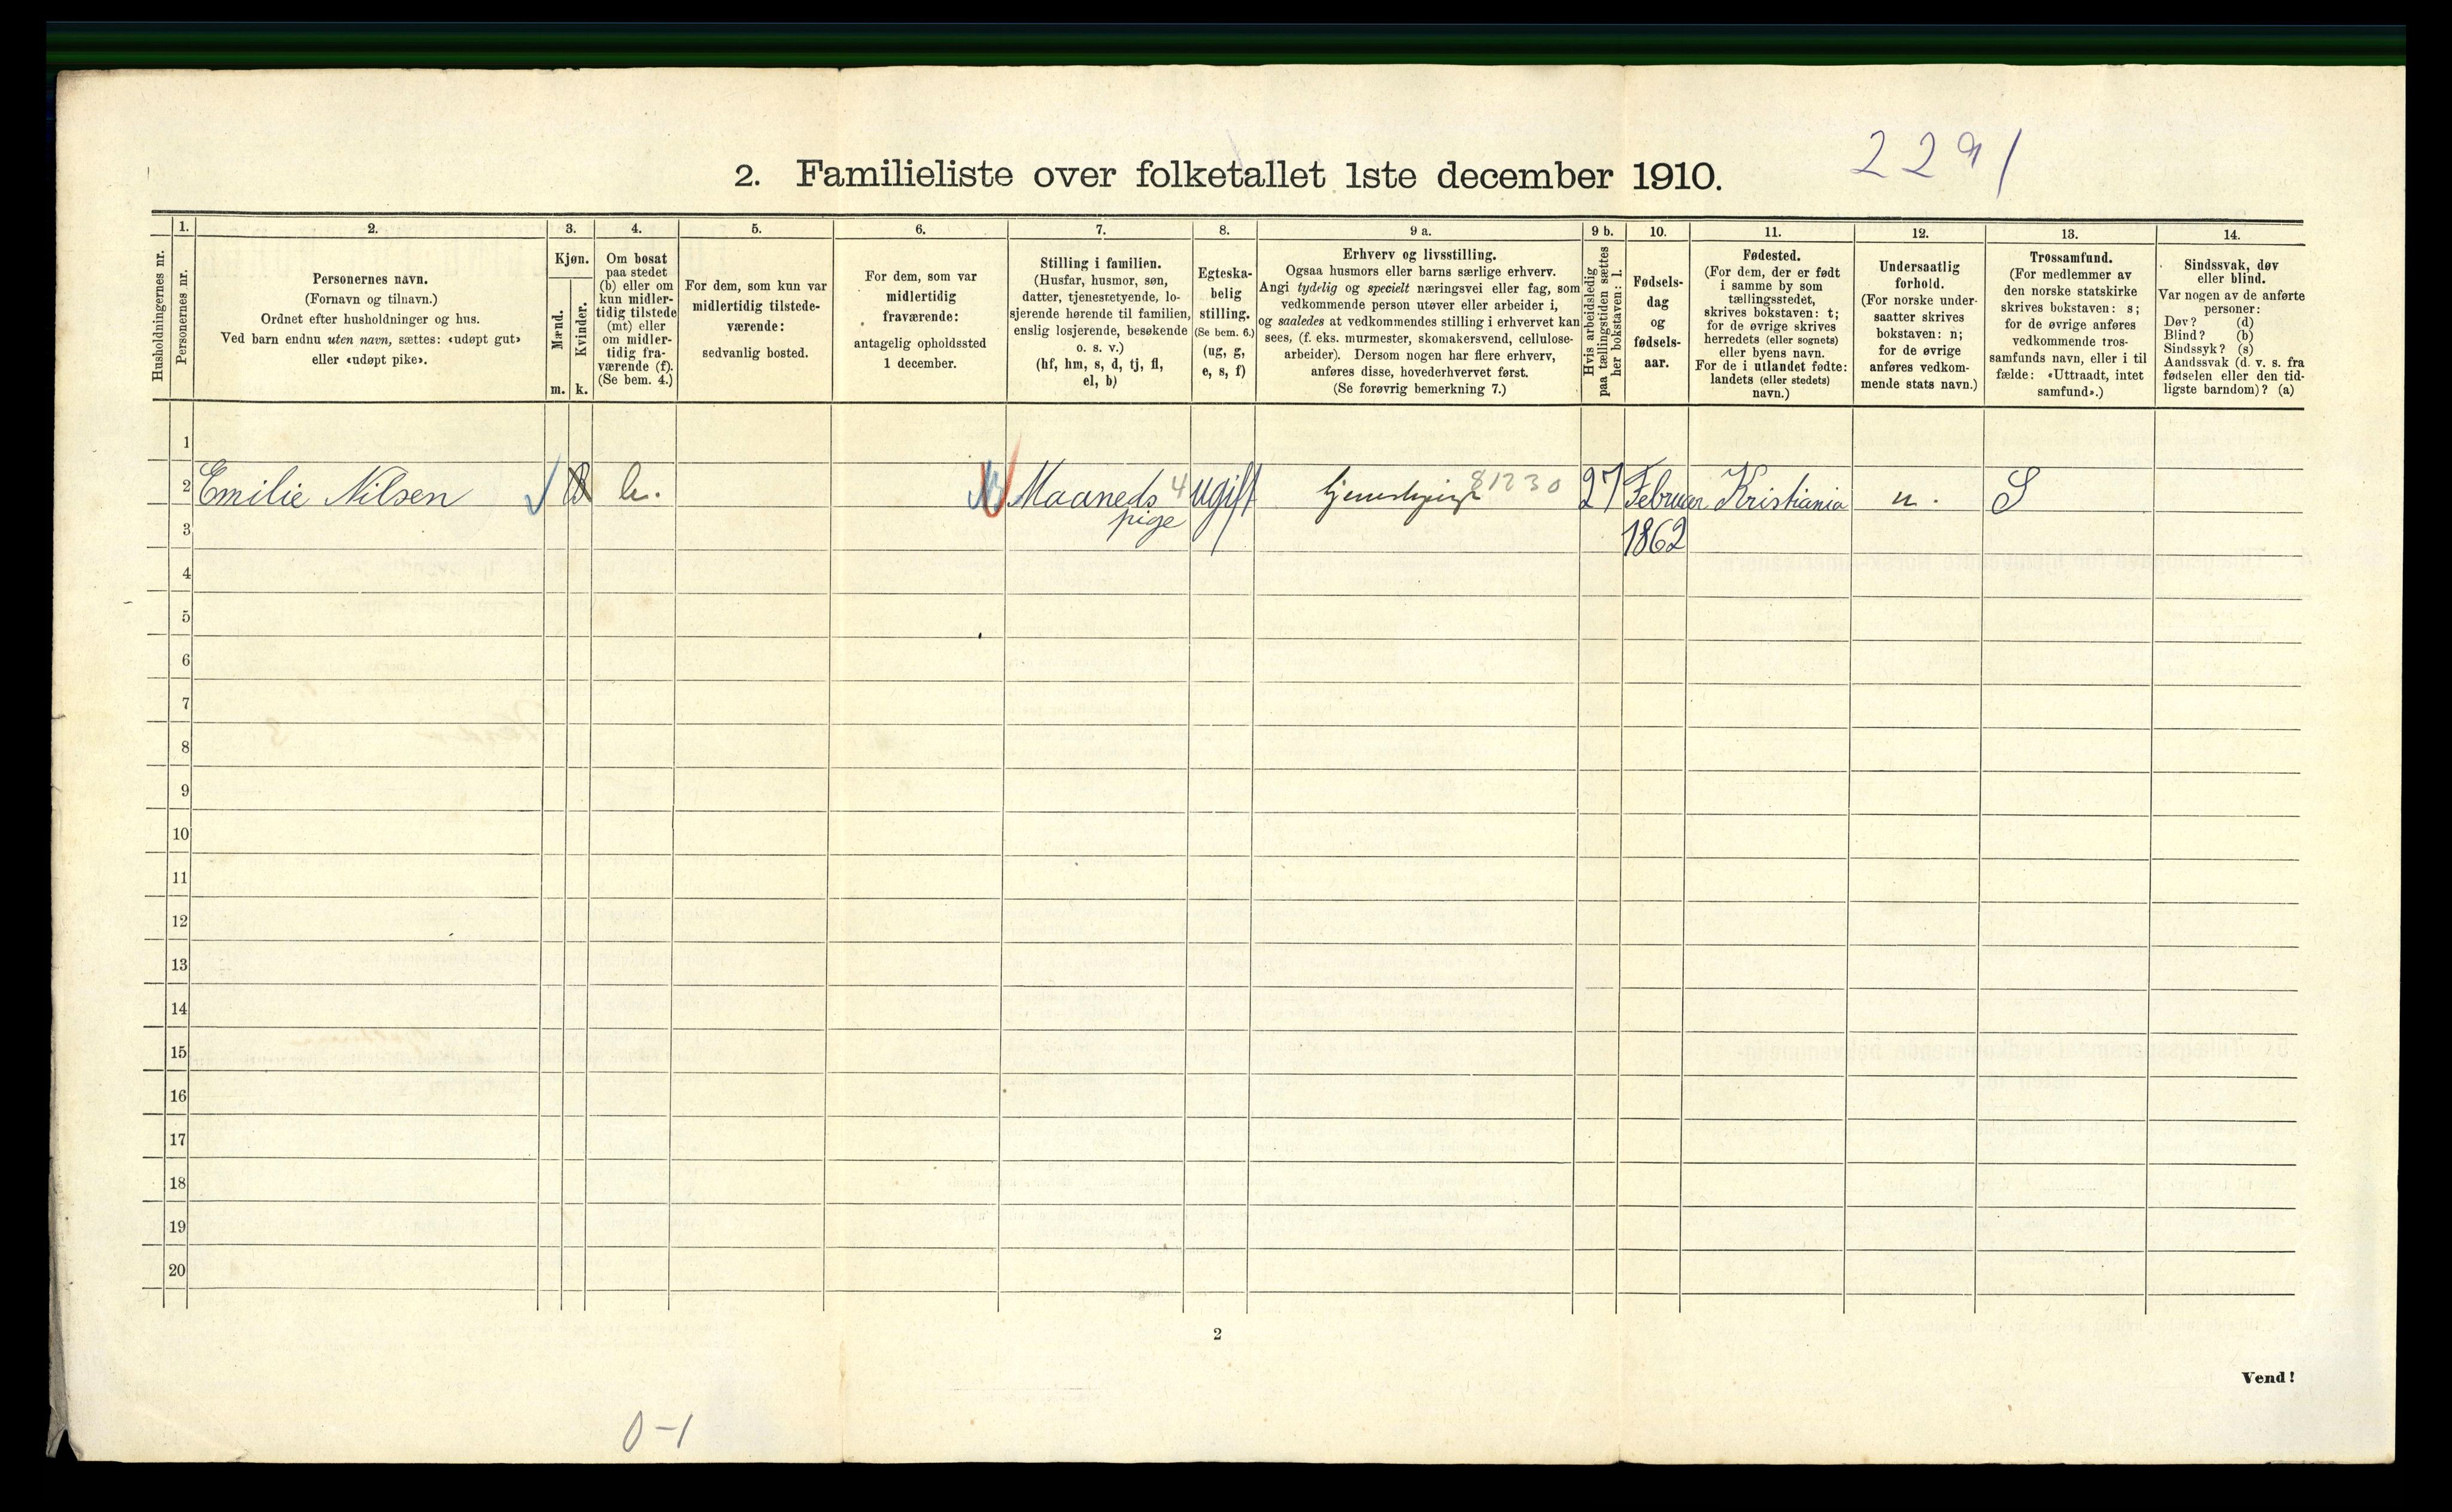 2291
2. Familieliste over folketallet 1ste december 1910.
1. 2. 3. 4. 5. 6. 7. 8. 9 a. 9 b. 10. 11. 12. 13. 14.
Husholdningernes nr.
Personernes nr.
Personernes navn.
(Fornavn og tilnavn.)
Ordnet efter husholdninger og hus.
Ved barn endnu uten navn, sættes: «udøpt gut»
eller «udøpt pike».
Kjøn.
Mænd.
Kvinder.
m. k.
Om bosat
paa stedet
(b) eller om
kun midler-
tidig tilstede
(mt) eller
om midler-
tidig fra-
værende (f).
(Se bem. 4.)
For dem, som kun var
midlertidig tilstede-
værende:
sedvanlig bosted.
For dem, som var
midlertidig
fraværende:
antagelig opholdssted
1 december.
Stilling i familien.
(Husfar, husmor, søn,
datter, tjenestetyende, lo-
sjerende hørende til familien,
enslig losjerende, besøkende
o. s. v.)
(hf, hm, s, d, tj, fl,
el, b)
Egteska-
belig
stilling.
(Se bem. 6.)
(ug, g,
e, s, f)
Erhverv og livsstilling.
Ogsaa husmors eller barns særlige erhverv.
Angi tydelig og specielt næringsvei eller fag, som
vedkommende person utøver eller arbeider i,
og saaledes at vedkommendes stilling i erhvervet kan
sees, (f. eks. murmester, skomakersvend, cellulose-
arbeider). Dersom nogen har flere erhverv,
anføres disse, hovederhvervet først.
(Se forøvrig bemerkning 7.)
Hvis arbeidsledig
paa tællingstiden sættes
her bokstaven: l.
Fødsels-
dag
og
fødsels-
aar.
Fødested.
(For dem, der er født
i samme by som
tællingsstedet,
skrives bokstaven: t;
for de øvrige skrives
herredets (eller sognets)
eller byens navn.
For de i utlandet fødte:
landets (eller stedets)
navn.)
Undersaatlig
forhold.
(For norske under-
saatter skrives
bokstaven: n;
for de øvrige
anføres vedkom-
mende stats navn.)
Trossamfund.
(For medlemmer av
den norske statskirke
skrives bokstaven: s;
for de øvrige anføres
vedkommende tros-
samfunds navn, eller i til
fælde: «Uttraadt, intet
samfund».)
Sindssvak, døv
eller blind.
Var nogen av de anførte
personer:
Døv? (d)
Blind? (b)
Sindssyk? (s)
Aandssvak (d. v. s. fra
fødselen eller den tid-
ligste barndom)? (a)
1
2 Emilie Nilsen b. Maaneds 4 ugift tjenestepige 81230 27 Februar Kristiania n. S
3 pige 1862
4
5
6
7
8
9
10
11
12
13
14
15
16
17
18
19
20
2
Vend!
0-1